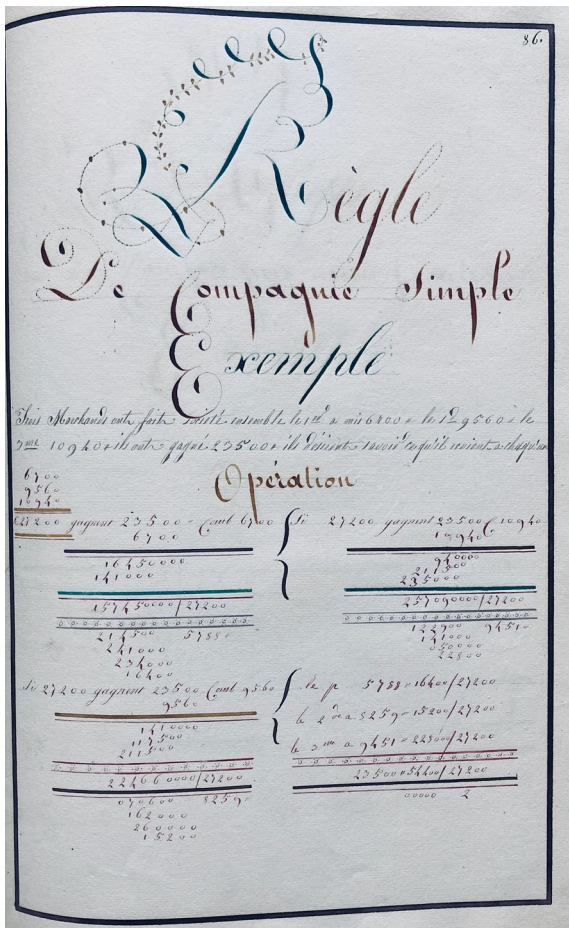 86.
Règle
De Compagnie Simple
Exemple
Trois Marchands ont fait société ensemble le 1er a mis 6700 le 2 9560 le
3me 10940 ils ont gagné 23500 ils désirent savoir ce qu'il revient a chaqu'un
Opération
6700
9560
10940
27200 gagnent 23500 Comb 6700
6700
16450000
141000
157450000/27200
214500 5788
241000
234000
16400
Si 27200 gagnent 23500 C 10940
10940
940000
211500
235000
257090000/27200
122900 9451
141000
050000
22800
Si 27200 gagnent 23500 Comb 9560
9560
1410000
117500
211500
224660000/27200
070600 8259
162000
260000
15200
le p 5788 16400/27200
le 2d a 8259 15200/27200
le 3me a 9451 22800/27200
23500 54400/27200
00000 2